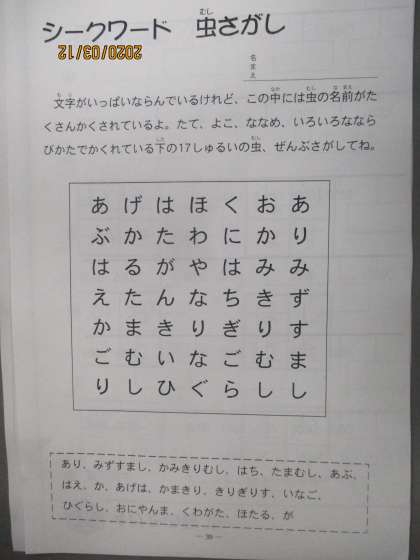 シークワード 虫さがし
むし
2020/03/12
名まえ
文字がいっぱいならんでいるけれど、この中には虫の名前がた
くさんかくされているよ。たて、よこ、ななめ、いろいろななら
びかたでかくれている下の17しゅるいの虫、ぜんぶさがしてね。
あ げ は ほ く お あ
ぶ か た わ に か り
は る が や は み み
え た ん な ち き ず
か ま き り ぎ り す
ご む い な ご む ま
り し ひ ぐ ら し し
あり、みずすまし、かみきりむし、はち、たまむし、あぶ、
はえ、か、あげは、かまきり、きりぎりす、いなご、
ひぐらし、おにやんま、くわがた、ほたる、が
— 39 —